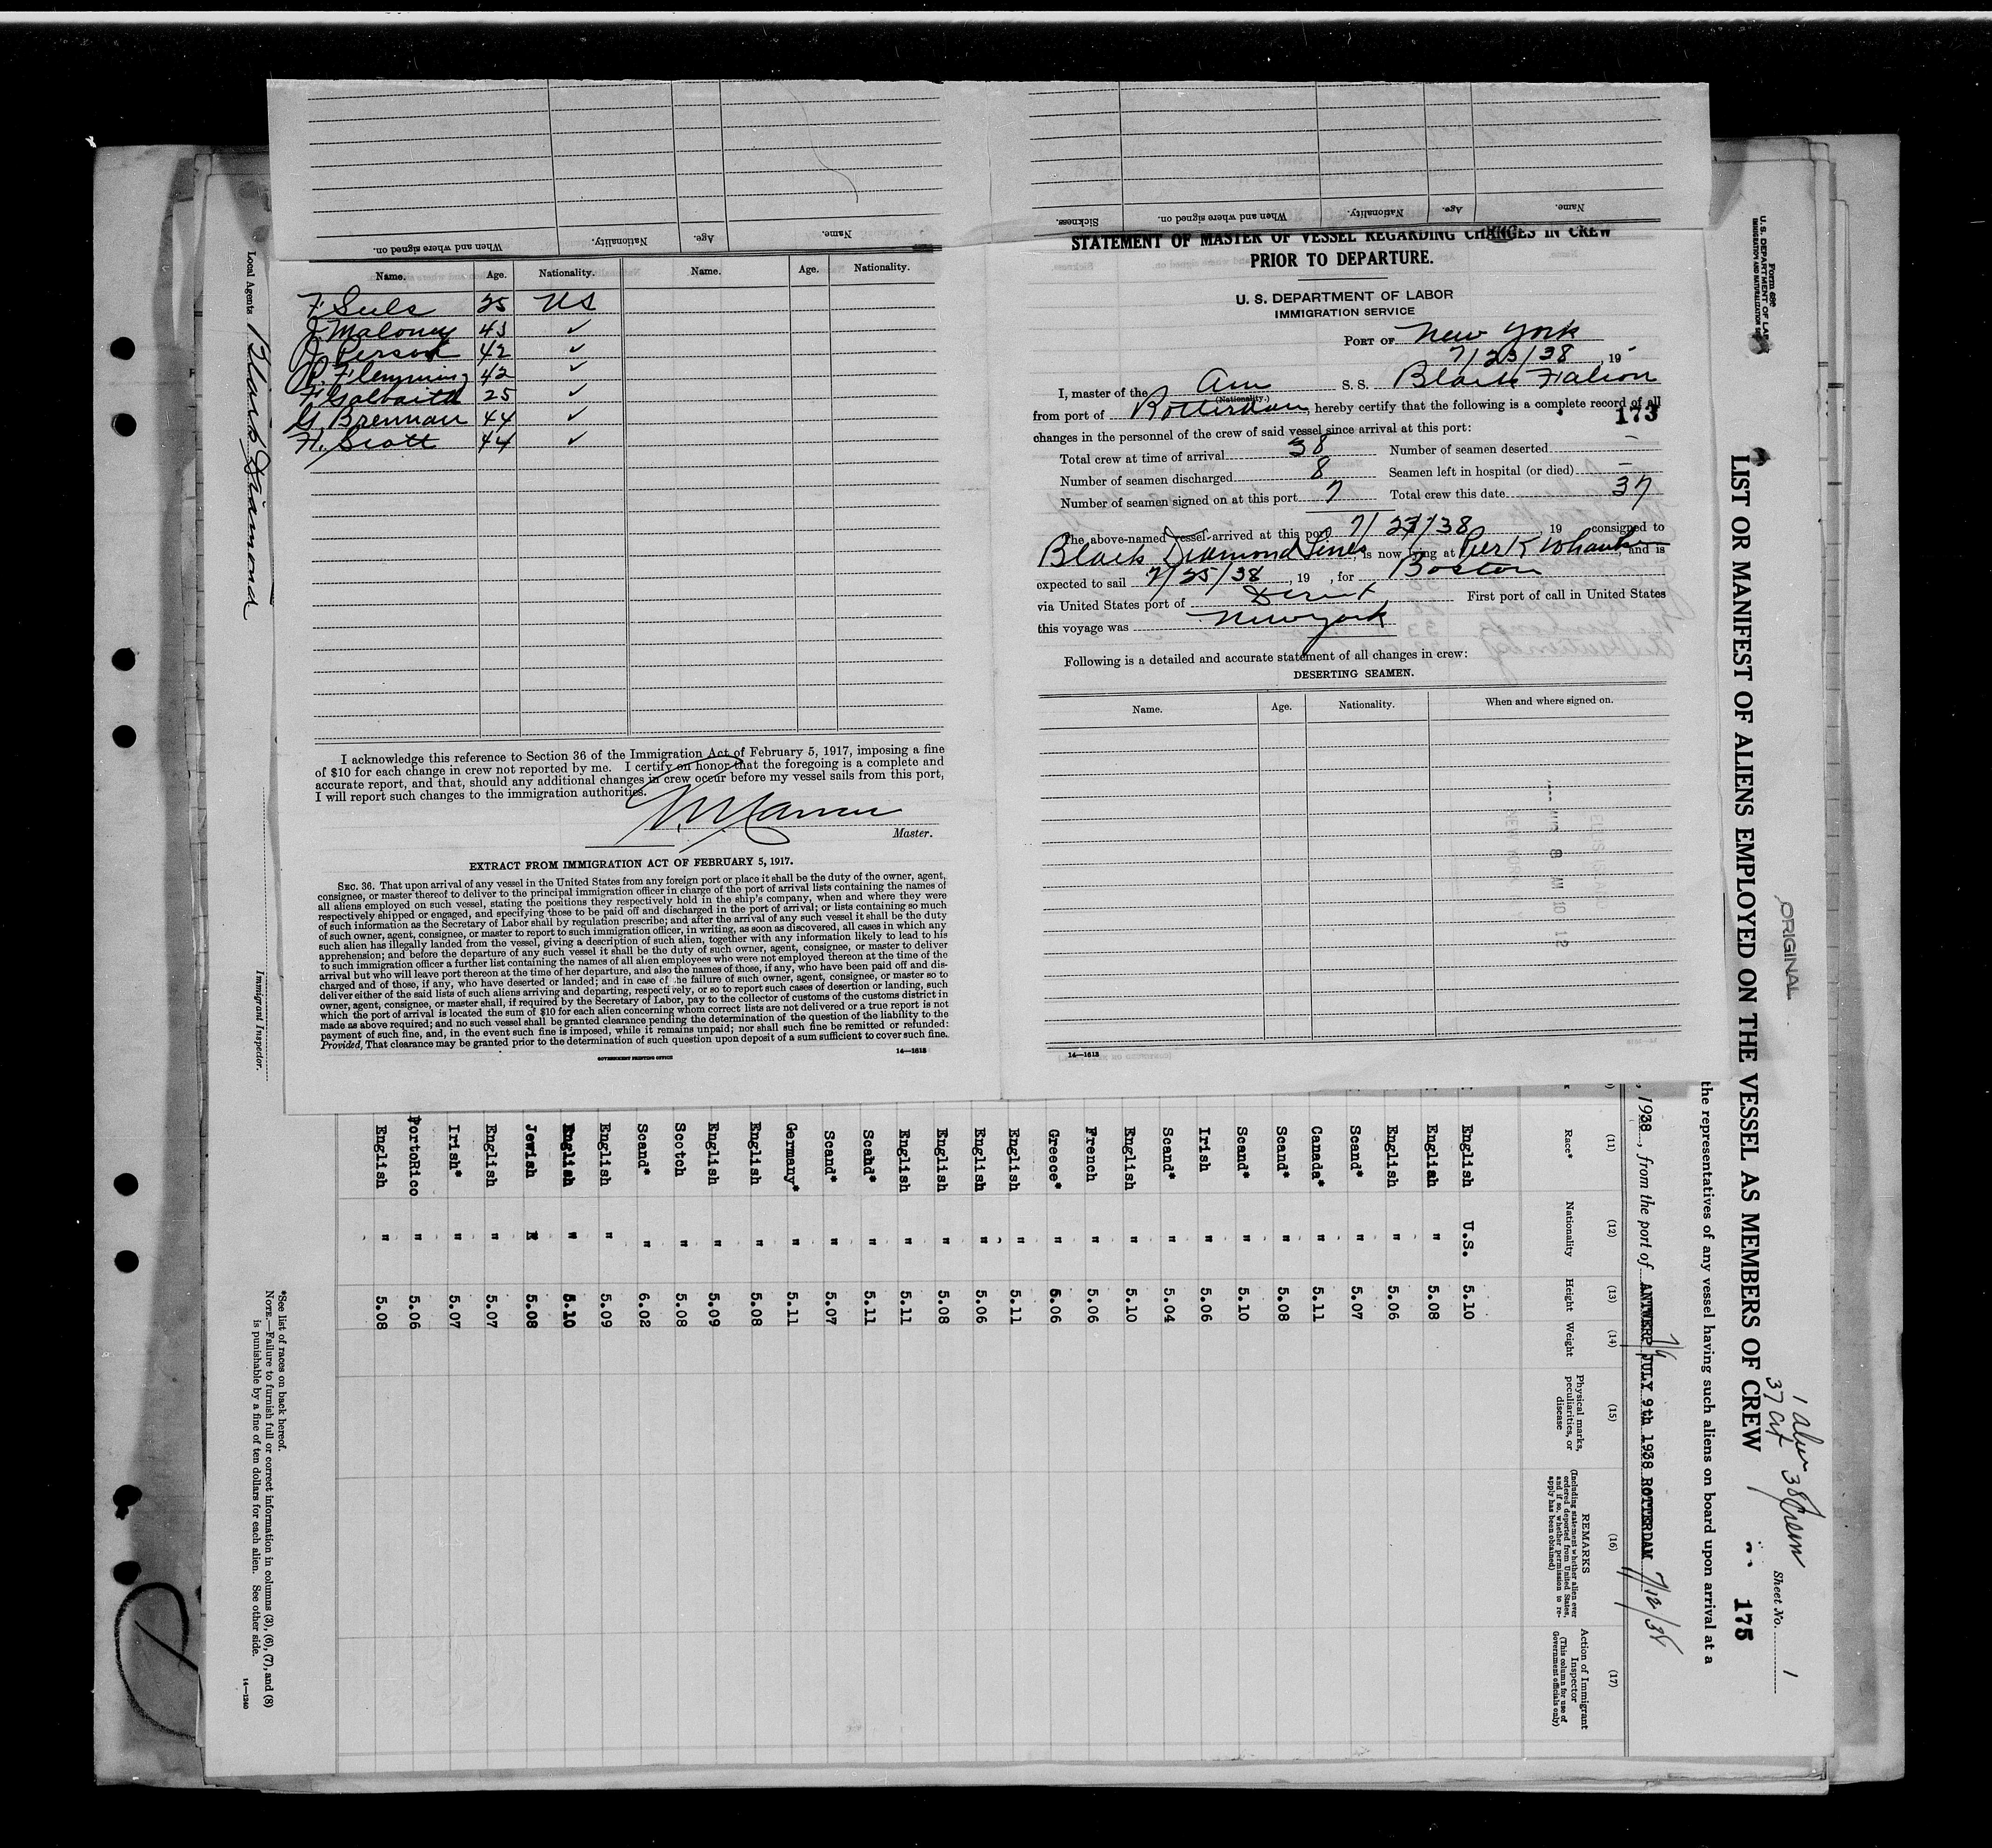 Name. Age. Nationality. When and where signed on.
Name. Age. Nationality. When and where signed on. Sickness.
Name. Age. Nationality. Name. Age. Nationality.
25 US
J. Maloney 43 ✓
J. 42 ✓
42 ✓
25 ✓
G. Brennan 44 ✓
H. Scott 44 ✓
I acknowledge this reference to Section 36 of the Immigration Act of February 5, 1917, imposing a fine
of $10 for each change in crew not reported by me. I certify on honor that the foregoing is a complete and
accurate report, and that, should any additional changes in crew occur before my vessel sails from this port,
I will report such changes to the immigration authorities.
Master.
EXTRACT FROM IMMIGRATION ACT OF FEBRUARY 5, 1917.
SEC. 36. That upon arrival of any vessel in the United States from any foreign port or place it shall be the duty of the owner, agent,
consignee, or master thereof to deliver to the principal immigration officer in charge of the port of arrival lists containing the names of
all aliens employed on such vessel, stating the positions they respectively hold in the ship's company, when and where they were
respectively shipped or engaged, and specifying those to be paid off and discharged in the port of arrival; or lists containing so much
of such information as the Secretary of Labor shall by regulation prescribe; and after the arrival of any such vessel it shall be the duty
of such owner, agent, consignee, or master to report to such immigration officer, in writing, as soon as discovered, all cases in which any
such alien has illegally landed from the vessel, giving a description of such alien, together with any information likely to lead to his
apprehension; and before the departure of any such vessel it shall be the duty of such owner, agent, consignee, or master to deliver
to such immigration officer a further list containing the names of all alien employees who were not employed thereon at the time of the
arrival but who will leave port thereon at the time of her departure, and also the names of those, if any, who have been paid off and dis-
charged and of those, if any, who have deserted or landed; and in case of the failure of such owner, agent, consignee, or master so to
deliver either of the said lists of such aliens arriving and departing, respectively, or so to report such cases of desertion or landing, such
owner, agent, consignee, or master shall, if required by the Secretary of Labor, pay to the collector of customs of the customs district in
which the port of arrival is located the sum of $10 for each alien concerning whom correct lists are not delivered or a true report is not
made as above required; and no such vessel shall be granted clearance pending the determination of the question of the liability to the
payment of such fine, and, in the event such fine is imposed, while it remains unpaid; nor shall such fine be remitted or refunded:
Provided, That clearance may be granted prior to the determination of such question upon deposit of a sum sufficient to cover such fine.
GOVERNMENT PRINTING OFFICE 14—1613
STATEMENT OF MASTER OF VESSEL REGARDING CHANGES IN CREW
PRIOR TO DEPARTURE.
U. S. DEPARTMENT OF LABOR
IMMIGRATION SERVICE
PORT OF New York
7/23/38, 19
I, master of the Am S. S. Black Falcon
(Nationality.)
from port of Rotterdam, hereby certify that the following is a complete record of all
173
changes in the personnel of the crew of said vessel since arrival at this port:
Total crew at time of arrival 38 Number of seamen deserted —
Number of seamen discharged 8 Seamen left in hospital (or died) —
Number of seamen signed on at this port 7 Total crew this date 37
The above-named vessel arrived at this port 7/23/38, 19 consigned to
Black Diamond Lines, is now lying at Pier K, and is
expected to sail 7/25/38, 19 , for Boston
via United States port of Direct First port of call in United States
this voyage was New York
Following is a detailed and accurate statement of all changes in crew:
DESERTING SEAMEN.
Name. Age. Nationality. When and where signed on.
14—1613
Local Agents Black Diamond
Immigrant Inspector.
Form 689
U. S. DEPARTMENT OF LABOR
IMMIGRATION AND NATURALIZATION
ORIGINAL
1 alien 38 Crew
37 cit
Sheet No. 1
LIST OR MANIFEST OF ALIENS EMPLOYED ON THE VESSEL AS MEMBERS OF CREW 175
the representatives of any vessel having such aliens on board upon arrival at a
, 1938, from the port of ANTWERP JULY 9th 1938 ROTTERDAM 7/12/38
7/9
(11) (12) (13) (14) (15) (16) (17)
Race* Nationality Height Weight Physical marks, peculiarities, or disease REMARKS (Including statement whether alien ever ordered deported from United States, and if so, whether permission to re-apply has been obtained) Action of Immigrant Inspector (This column for use of Government officials only)
English U.S. 5.10
English " 5.08
English " 5.06
Scand* " 5.07
Canada* " 5.11
Scand* " 5.08
Scand* " 5.10
Irish " 5.06
Scand* " 5.04
English " 5.10
French " 5.06
Greece* " 5.06
English " 5.11
English " 5.06
English " 5.08
English " 5.11
Scand* " 5.11
Scand* " 5.07
Germany* " 5.11
English " 5.08
English " 5.09
Scotch " 5.08
Scand* " 6.02
English " 5.09
English " 5.10
Jewish 5.08
English " 5.07
Irish* " 5.07
PortoRico " 5.06
English " 5.08
*See list of races on back hereof.
NOTE.—Failure to furnish full or correct information in columns (3), (6), (7), and (8)
is punishable by a fine of ten dollars for each alien. See other side.
14—1240